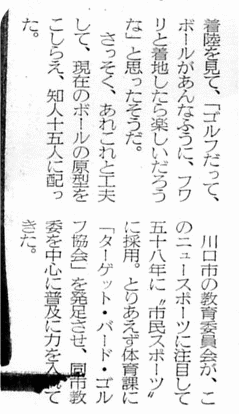 着陸を見て、「ゴルフだって、
ボールがあんなふうに、フワ
リと着地したら楽しいだろう
な」と思ったそうだ。
　さっそく、あれこれと工夫
して、現在のボールの原型を
こしらえ、知人十五人に配っ
た。
　川口市の教育委員会が、こ
のニュースポーツに注目して
五十八年に〝市民スポーツ〟
に採用。とりあえず体育課に
「ターゲット・バード・ゴル
フ協会」を発足させ、同市教
委を中心に普及に力を入れて
きた。